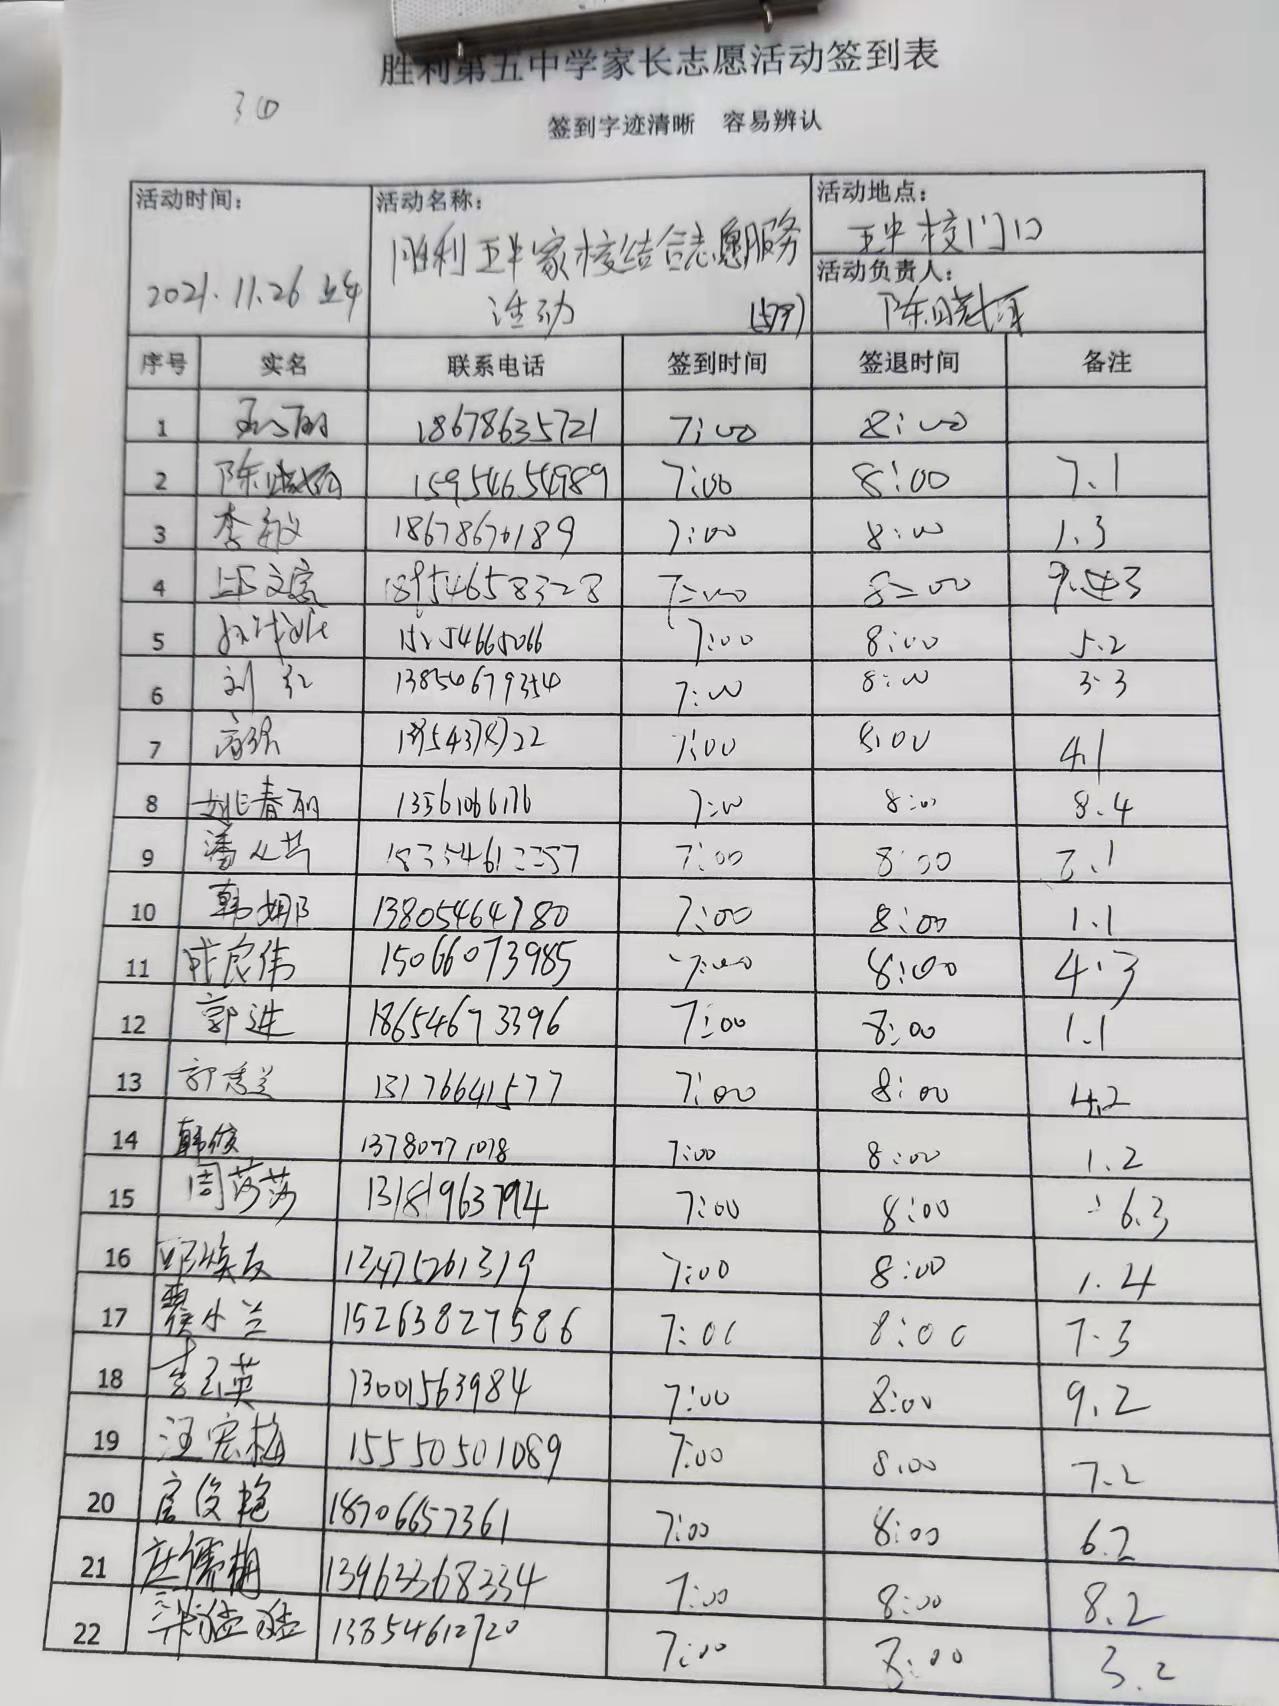 胜利第五中学家长志愿活动签到表
签到字迹清晰 容易辨认
活动时间: 2021.11.26 上午
活动名称: 胜利五中家校结合志愿服务
活动
活动地点: 五中校门口
活动负责人: 陈晓
序号 实名 联系电话 签到时间 签退时间 备注
1 18678635721 7:00 8:00
2 陈 15954654989 7:00 8:00 7.1
3 李敏 7:00 8:00 1.3
4 文 18954658328 7:00 8:00
5 7:00 8:00 5.2
6 刘红 13854679354 7:00 8:00 3.3
7 7:00 8:00 4.1
8 姚春丽 13561066176 7:00 8:00 8.4
9 潘 7:00 8:00
10 韩娜 13805464780 7:00 8:00 1.1
11 成良伟 15066073985 7:00 8:00 4.3
12 郭进 18654673396 7:00 8:00 1.1
13 郭秀兰 13176641577 7:00 8:00 4.2
14 韩俊 13780771078 7:00 8:00 1.2
15 周莎莎 13181963794 7:00 8:00 6.3
16 13475261319 7:00 8:00 1.4
17 小兰 15263827586 7:00 8:00 7.3
18 李玉英 13001563984 7:00 8:00 9.2
19 汪宏梅 15550501089 7:00 8:00 7.2
20 俊艳 18706657361 7:00 8:00 6.2
21 庄儒梅 13963368334 7:00 8:00 8.2
22 13854612720 7:00 8:00 3.2